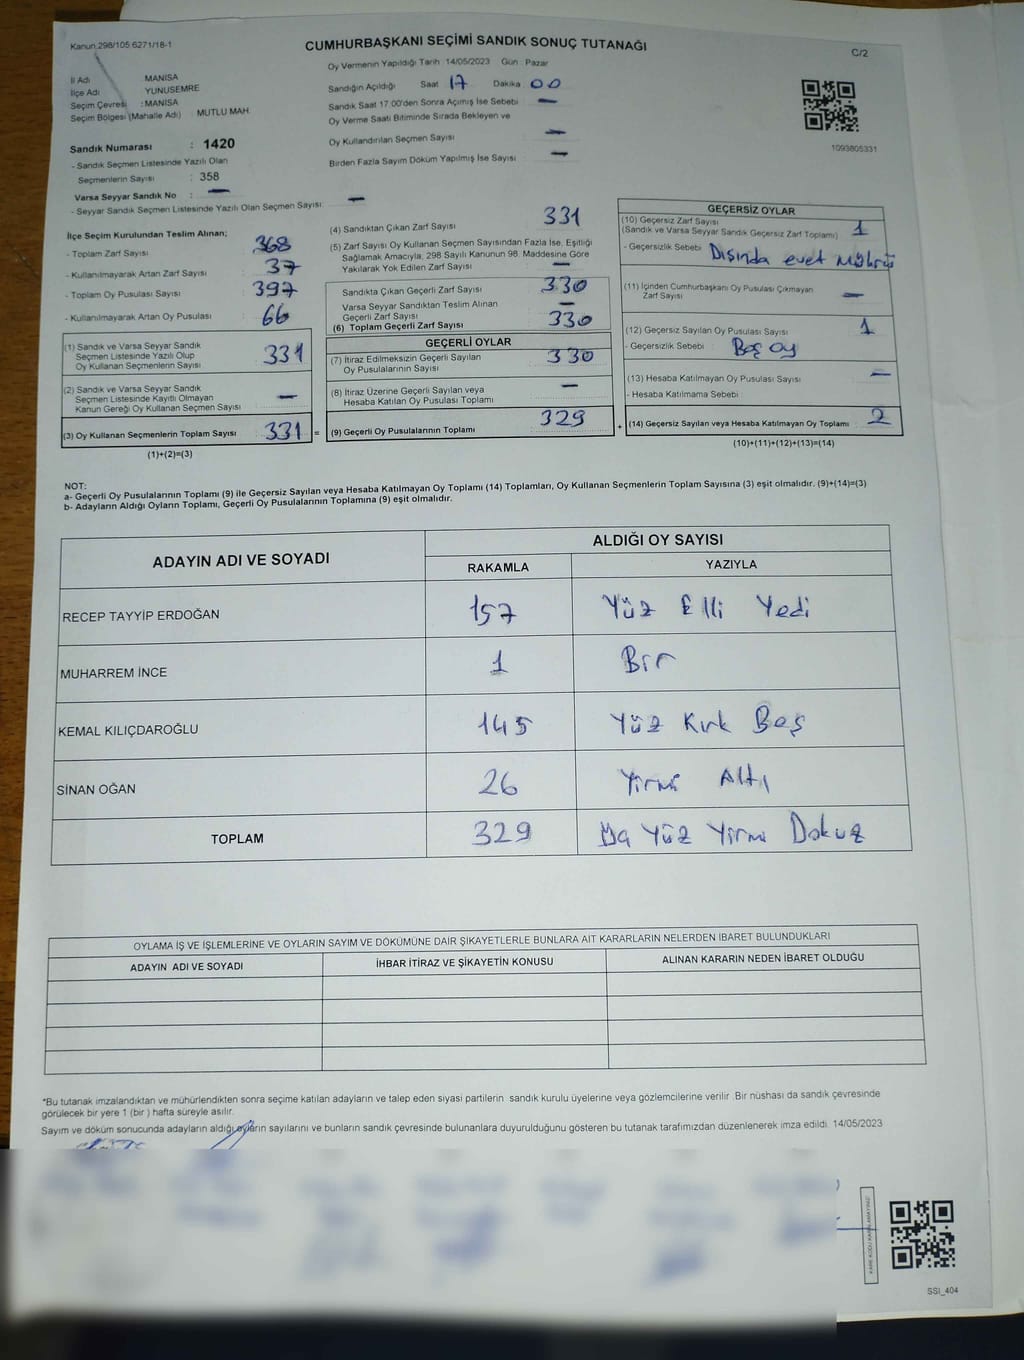 Kanun 298/105 6271/18-1
CUMHURBAŞKANI SEÇİMİ SANDIK SONUÇ TUTANAĞI
C/2
İl Adı MANİSA
İlçe Adı YUNUSEMRE
Seçim Çevresi : MANİSA
Seçim Bölgesi (Mahalle Adı) : MUTLU MAH.
Sandık Numarası : 1420
- Sandık Seçmen Listesinde Yazılı Olan
Seçmenlerin Sayısı : 358
Varsa Seyyar Sandık No : —
- Seyyar Sandık Seçmen Listesinde Yazılı Olan Seçmen Sayısı: —
Oy Vermenin Yapıldığı Tarih 14/05/2023 Gün : Pazar
Sandığın Açıldığı Saat 17 Dakika 00
Sandık Saat 17:00'den Sonra Açımış İse Sebebi —
Oy Verme Saati Bitiminde Sırada Bekleyen ve
Oy Kullandırılan Seçmen Sayısı —
Birden Fazla Sayım Döküm Yapılmış İse Sayısı —
1093805331
İlçe Seçim Kurulundan Teslim Alınan;
- Toplam Zarf Sayısı 368
- Kullanılmayarak Artan Zarf Sayısı 37
- Toplam Oy Pusulası Sayısı 397
- Kullanılmayarak Artan Oy Pusulası 66
(1) Sandık ve Varsa Seyyar Sandık
Seçmen Listesinde Yazılı Olup
Oy Kullanan Seçmenlerin Sayısı 331
(2) Sandık ve Varsa Seyyar Sandık
Seçmen Listesinde Kayıtlı Olmayan
Kanun Gereği Oy Kullanan Seçmen Sayısı —
(3) Oy Kullanan Seçmenlerin Toplam Sayısı 331 =
(1)+(2)=(3)
(4) Sandıktan Çıkan Zarf Sayısı 331
(5) Zarf Sayısı Oy Kullanan Seçmen Sayısından Fazla İse, Eşitliği
Sağlamak Amacıyla, 298 Sayılı Kanunun 98. Maddesine Göre
Yakılarak Yok Edilen Zarf Sayısı —
Sandıkta Çıkan Geçerli Zarf Sayısı 330
Varsa Seyyar Sandıktan Teslim Alınan
Geçerli Zarf Sayısı —
(6) Toplam Geçerli Zarf Sayısı 330
GEÇERLİ OYLAR
(7) İtiraz Edilmeksizin Geçerli Sayılan
Oy Pusulalarının Sayısı 330
(8) İtiraz Üzerine Geçerli Sayılan veya
Hesaba Katılan Oy Pusulası Toplamı —
(9) Geçerli Oy Pusulalarının Toplamı 329 +
GEÇERSİZ OYLAR
(10) Geçersiz Zarf Sayısı
(Sandık ve Varsa Seyyar Sandık Geçersiz Zarf Toplamı) 1
- Geçersizlik Sebebi : Dışında evet mührü
(11) İçinden Cumhurbaşkanı Oy Pusulası Çıkmayan
Zarf Sayısı —
(12) Geçersiz Sayılan Oy Pusulası Sayısı 1
- Geçersizlik Sebebi : Boş oy
(13) Hesaba Katılmayan Oy Pusulası Sayısı —
- Hesaba Katılmama Sebebi
(14) Geçersiz Sayılan veya Hesaba Katılmayan Oy Toplamı : 2
(10)+(11)+(12)+(13)=(14)
NOT:
a- Geçerli Oy Pusulalarının Toplamı (9) ile Geçersiz Sayılan veya Hesaba Katılmayan Oy Toplamı (14) Toplamları, Oy Kullanan Seçmenlerin Toplam Sayısına (3) eşit olmalıdır. (9)+(14)=(3)
b- Adayların Aldığı Oyların Toplamı, Geçerli Oy Pusulalarının Toplamına (9) eşit olmalıdır.
ADAYIN ADI VE SOYADI
ALDIĞI OY SAYISI
RAKAMLA YAZIYLA
RECEP TAYYİP ERDOĞAN 157 Yüz Elli Yedi
MUHARREM İNCE 1 Bir
KEMAL KILIÇDAROĞLU 145 Yüz Kırk Beş
SİNAN OĞAN 26 Yirmi Altı
TOPLAM 329 Yüz Yirmi Dokuz
OYLAMA İŞ VE İŞLEMLERİNE VE OYLARIN SAYIM VE DÖKÜMÜNE DAİR ŞİKAYETLERLE BUNLARA AİT KARARLARIN NELERDEN İBARET BULUNDUKLARI
ADAYIN ADI VE SOYADI İHBAR İTİRAZ VE ŞİKAYETİN KONUSU ALINAN KARARIN NEDEN İBARET OLDUĞU
*Bu tutanak imzalandıktan ve mühürlendikten sonra seçime katılan adayların ve talep eden siyasi partilerin sandık kurulu üyelerine veya gözlemcilerine verilir .Bir nüshası da sandık çevresinde
görülecek bir yere 1 (bir ) hafta süreyle asılır.
Sayım ve döküm sonucunda adayların aldığı oyların sayılarını ve bunların sandık çevresinde bulunanlara duyurulduğunu gösteren bu tutanak tarafımızdan düzenlenerek imza edildi. 14/05/2023
SSI_404